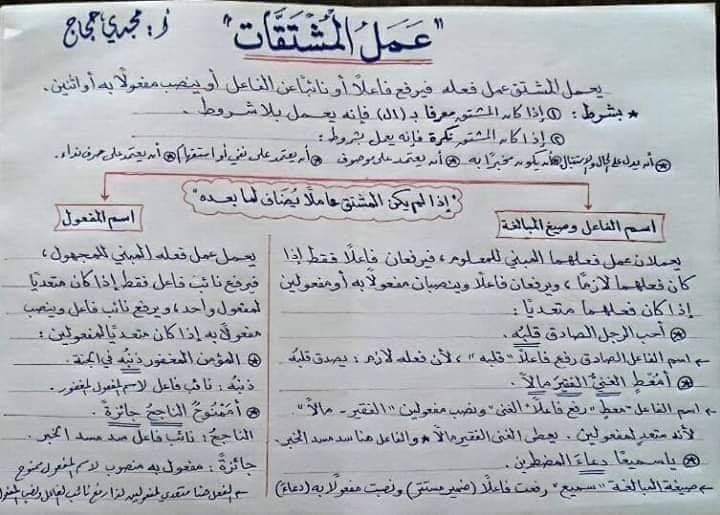 "عَمَلُ المُشْتَقَّات"
أ: مجدي حجاج
يعمل المشتق عمل فعله فيرفع فاعلًا أو نائبًا عن الفاعل أو ينصب مفعولًا به أو اثنين.
* بشرط: ① إذا كان المشتق معرفا بـ (ال) فإنه يعمل بلا شروط.
② إذا كان المشتق نكرة فإنه يعمل بشروط:
* أن يدل على الحال والاستقبال * أن يكون مخبرًا به * أن يعتمد على موصوف * أن يعتمد على نفي أو استفهام * أن يعتمد على حرف نداء.
"إذا لم يكن المشتق عاملًا يُضاف لما بعده"
اسم الفاعل وصيغ المبالغة
يعملان عمل فعلهما المبني للمعلوم، فيرفعان فاعلًا فقط إذا
كان فعلهما لازمًا، ويرفعان فاعلًا وينصبان مفعولًا به أو مفعولين
إذا كان فعلهما متعديًا:
* أحب الرجل الصادق قلبُه.
← اسم الفاعل الصادق رفع فاعلًا "قلبه"، لأن فعله لازم: يصدق قلبُه
* أمُعْطٍ الغنيُّ الفقيرَ مالًا.
← اسم الفاعل "معطٍ" رفع فاعلًا "الغنى" ونصب مفعولين "الفقير - مالًا".
لأنه متعد لمفعولين. يعطى الغنى الفقير مالًا * والفاعل هنا سد مسد الخبر.
* يا سميعًا دعاءَ المضطرين.
← صيغة المبالغة "سميع" رفعت فاعلًا (ضمير مستتر) ونصبت مفعولًا به (دعاءَ)
اسم المفعول
يعمل عمل فعله المبني للمجهول،
فيرفع نائبَ فاعل فقط إذا كان متعديًا
لمفعول واحد، ويرفع نائب فاعل وينصب
مفعولًا به إذا كان متعديًا لمفعولين:
* المؤمن المغفور ذنبُه في الجنة.
ذنبُه: نائب فاعل لاسم المفعول المغفور.
* أمَمْنُوحٌ الناجحُ جائزةً.
الناجحُ: نائب فاعل سد مسد الخبر.
جائزةً: مفعول به منصوب لاسم المفعول ممنوح
← الفعل هنا متعدي لمفعولين لذا رفع نائب الفاعل ونصب المفعول